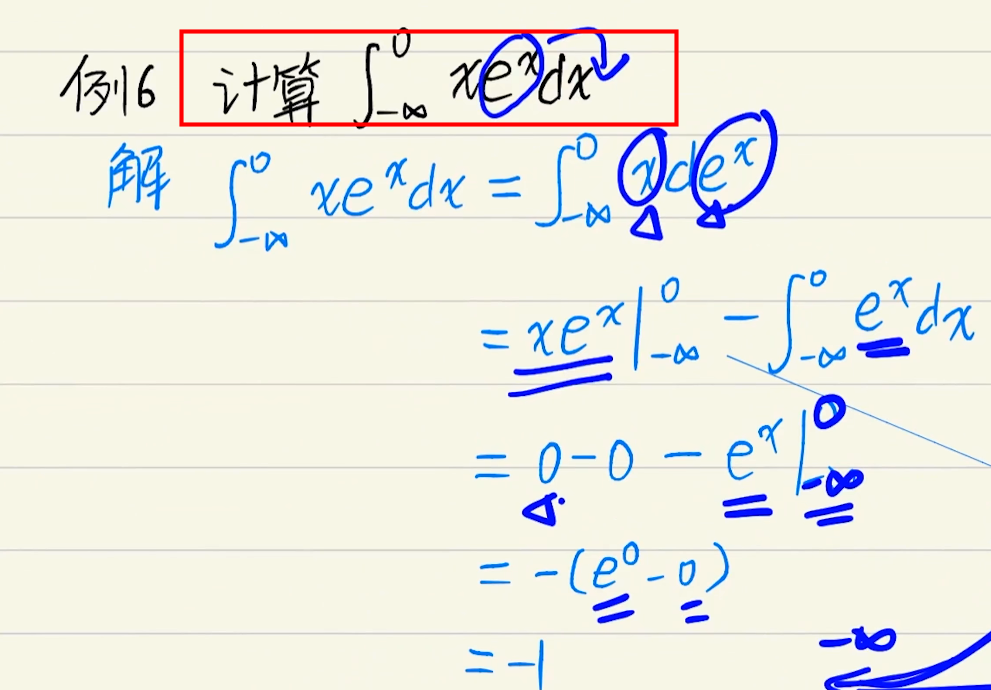 例6 计算 ∫_{-∞}^{0} xe^x dx
解 ∫_{-∞}^{0} xe^x dx = ∫_{-∞}^{0} x de^x
= xe^x |_{-∞}^{0} - ∫_{-∞}^{0} e^x dx
= 0 - 0 - e^x |_{-∞}^{0}
= -(e^0 - 0)
= -1
-∞